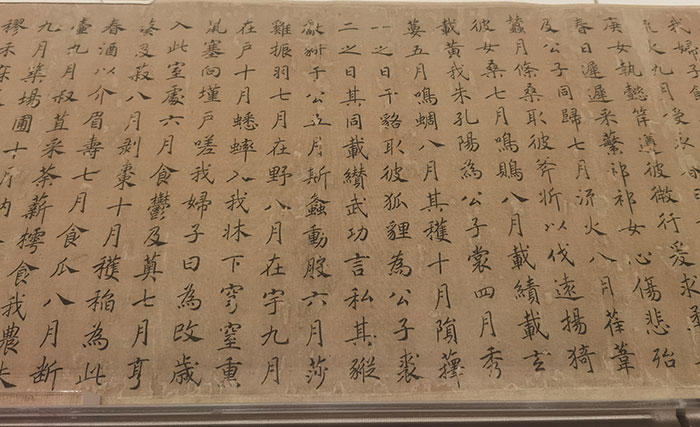 我婦子
火九月
庚女執懿筐遵彼微行爰求柔
春日遲遲采蘩祁祁女心傷悲殆
及公子同歸七月流火八月萑葦
蠶月條桑取彼斧斨以伐遠揚猗
彼女桑七月鳴鵙八月載績載玄
載黃我朱孔陽為公子裳四月秀
葽五月鳴蜩八月其穫十月隕蘀
一之日于貉取彼狐貍為公子裘
二之日其同載纘武功言私其豵
獻豜于公五月斯螽動股六月莎
雞振羽七月在野八月在宇九月
在戶十月蟋蟀入我牀下穹窒熏
鼠塞向墐戶嗟我婦子曰為改歲
入此室處六月食鬱及薁七月亨
葵及菽八月剥棗十月穫稻為此
春酒以介眉壽七月食瓜八月断
壷九月叔苴采荼薪樗食我農夫
九月築場圃十月納
穋禾麻